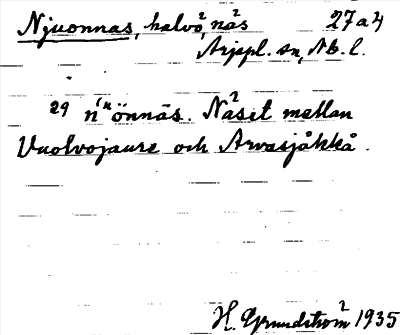 Njuonnas, halvö, näs 27a4
Arjepl. sn, Nb. l.
29 n'ⁿönnàs. Näset mellan
Vuolvojaure och Arvasjåkkå.
H. Grundström 1935